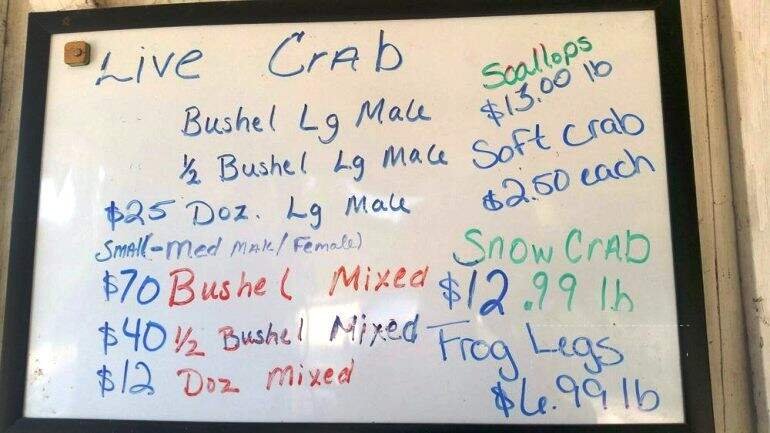 Live Crab
Bushel Lg Male
1/2 Bushel Lg Male
$25 Doz. Lg Male
Small-Med Male/Female)
$70 Bushel Mixed
$40 1/2 Bushel Mixed
$12 Doz mixed
Scallops
$13.00 lb
Soft Crab
$2.50 each
Snow Crab
$12.99 lb
Frog Legs
$6.99 lb